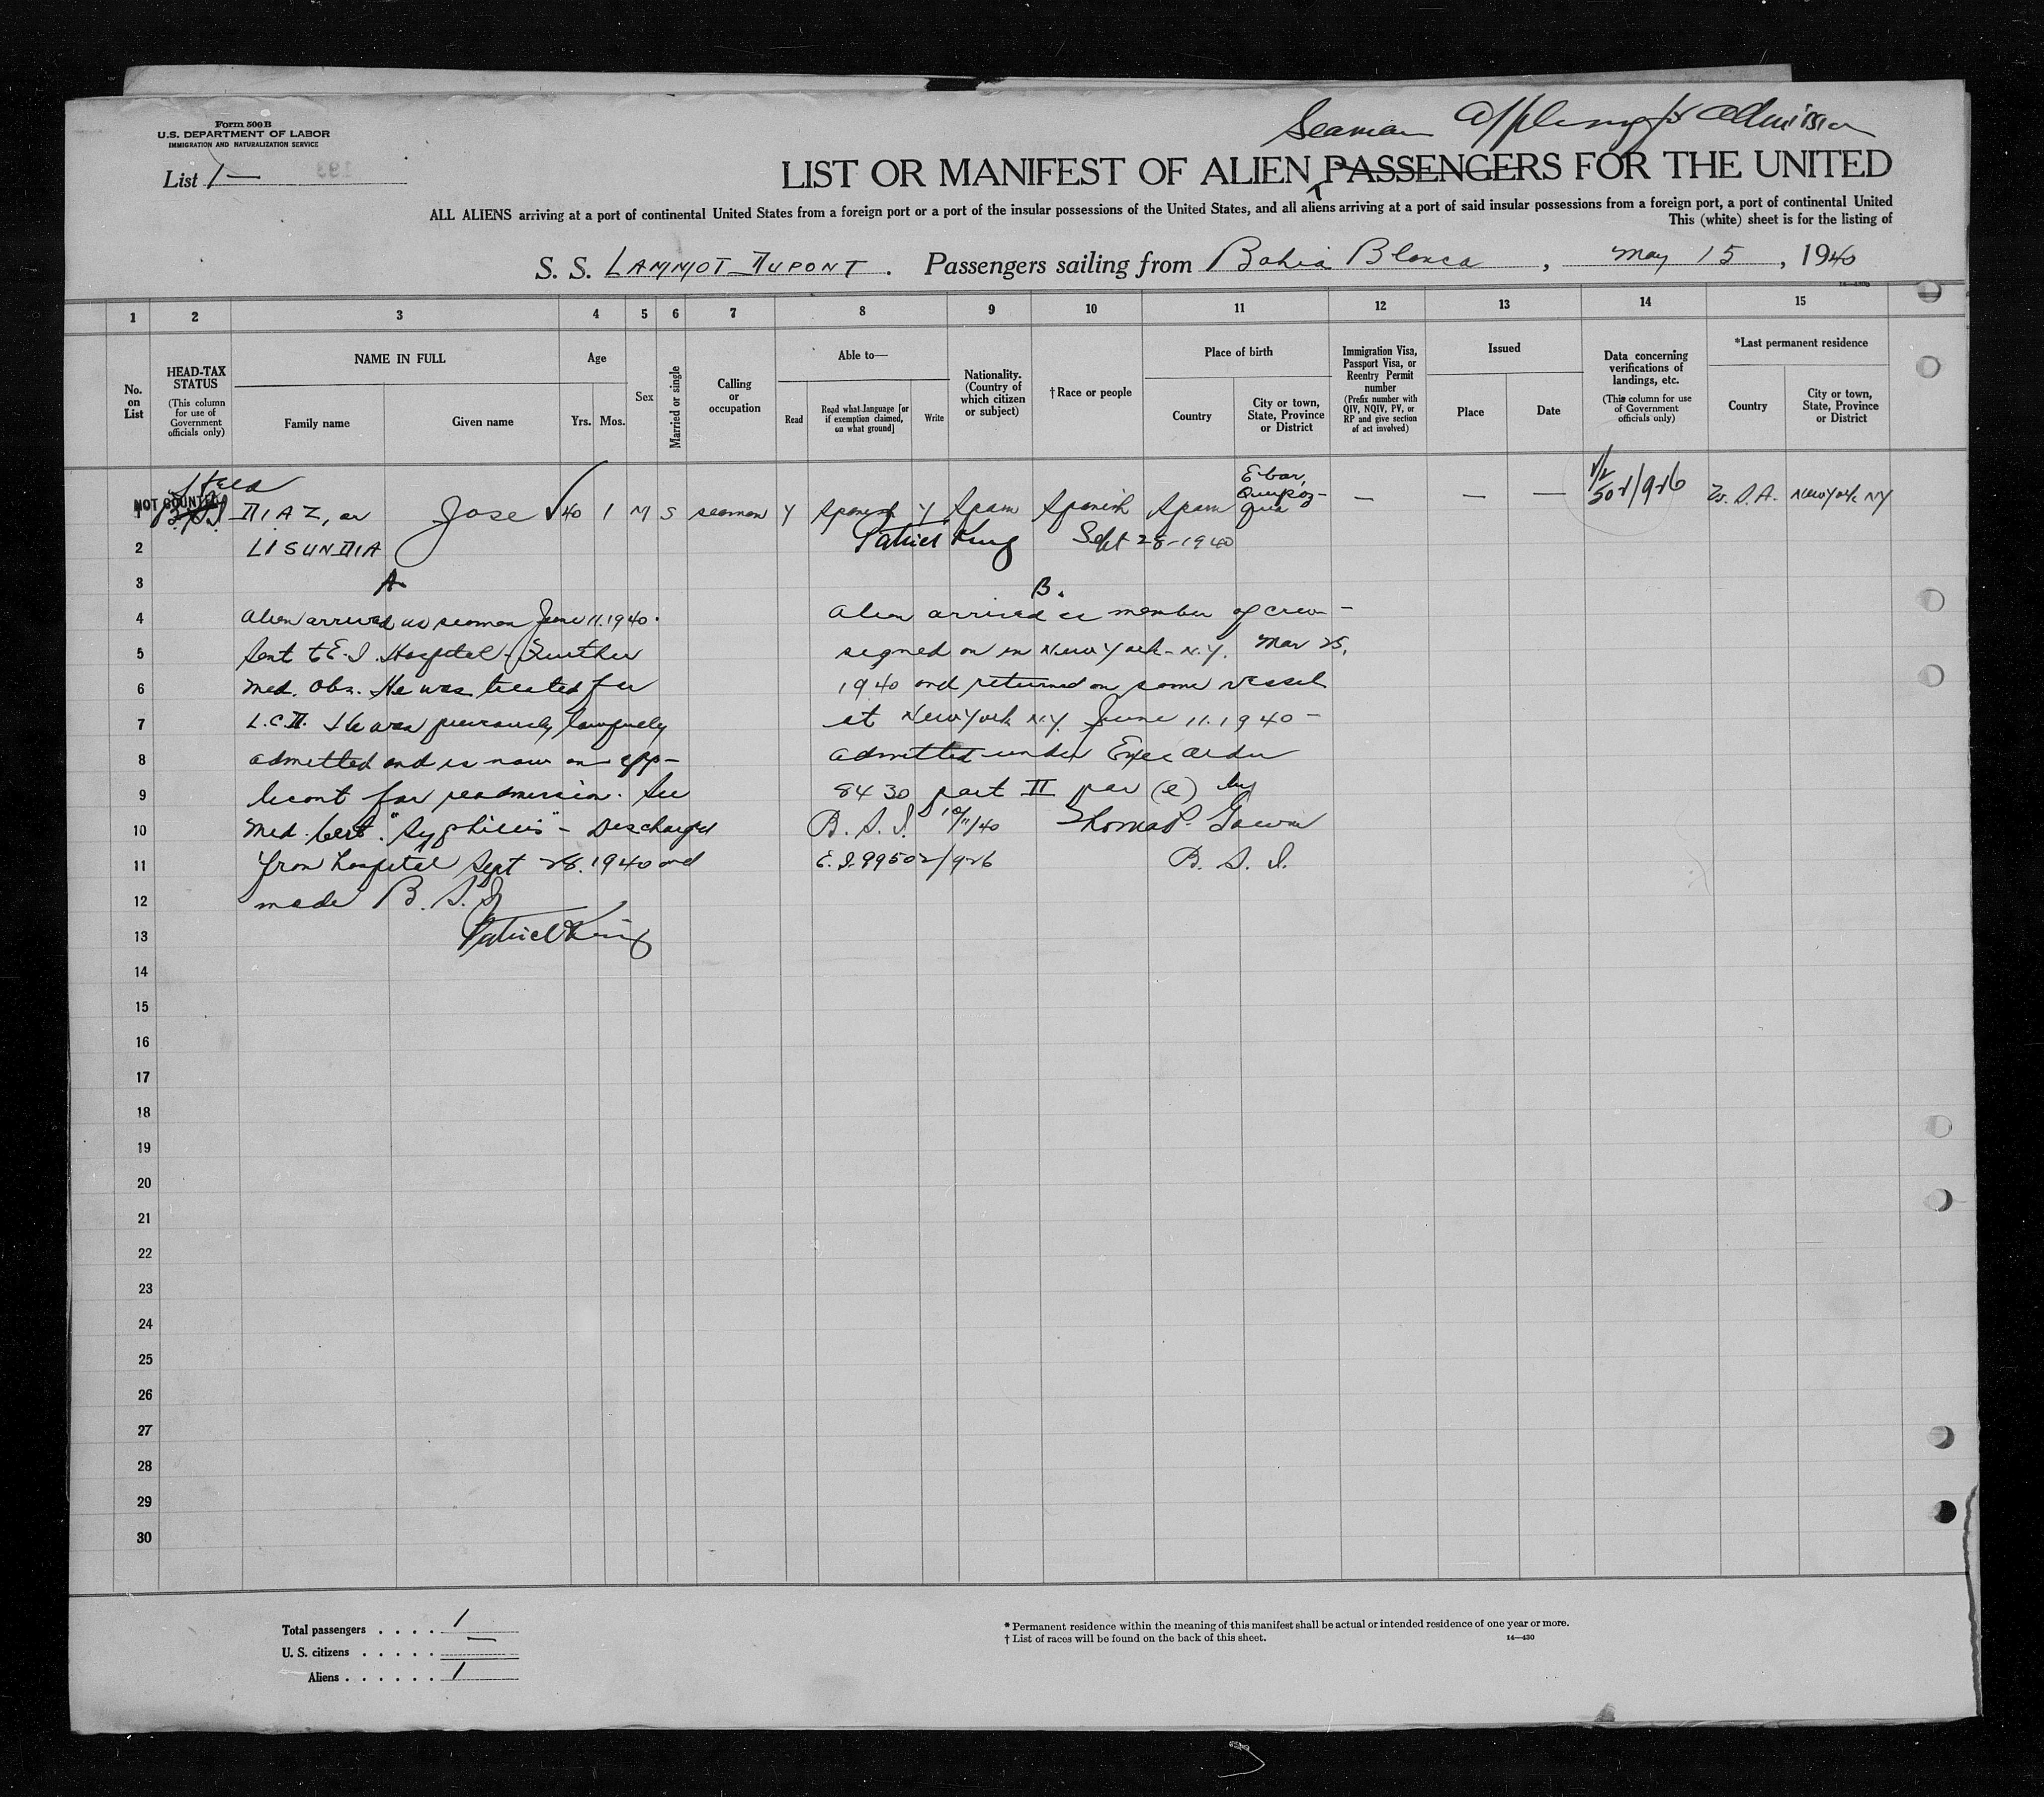 Form 500 B
U.S. DEPARTMENT OF LABOR
IMMIGRATION AND NATURALIZATION SERVICE
List 1—
Seaman Applying for Admission
LIST OR MANIFEST OF ALIEN PASSENGERS FOR THE UNITED
ALL ALIENS arriving at a port of continental United States from a foreign port or a port of the insular possessions of the United States, and all aliens arriving at a port of said insular possessions from a foreign port, a port of continental United
This (white) sheet is for the listing of
S. S. LAMMOT DUPONT . Passengers sailing from Bahia Blanca , May 15 , 1940
1 2 3 4 5 6 7 8 9 10 11 12 13 14 15
No. on List
HEAD-TAX STATUS
(This column for use of Government officials only)
NAME IN FULL
Family name
Given name
Age
Yrs. Mos.
Sex
Married or single
Calling or occupation
Able to—
Read
Read what language [or if exemption claimed, on what ground]
Write
Nationality. (Country of which citizen or subject)
†Race or people
Place of birth
Country
City or town, State, Province or District
Immigration Visa, Passport Visa, or Reentry Permit number
(Prefix number with QIV, NQIV, PV, or RP and give section of act involved)
Issued
Place
Date
Data concerning verifications of landings, etc.
(This column for use of Government officials only)
*Last permanent residence
Country
City or town, State, Province or District
NOT COUNTED
1 DIAZ, or Jose 40 1 M S seaman Y Spanish Y Spain Spanish Spain Eibar, — — — 502/926 U.S.A. New York NY
2 LISUNDIA Patrick King Sept 28-1940
3 A. B.
4 Alien arrived as seaman June 11.1940. Alien arrived as member of crew -
5 Sent to E.I. Hospital - Further signed on in New York - N.Y. Mar 25,
6 Med. Obs. He was treated for 1940 and returned on same vessel
7 L.C.D. He was previously lawfully at New York N.Y. June 11.1940 -
8 admitted and is now an app- admitted under Exec Order
9 licant for readmission. See 8430 part II par (e) by
10 Med. Cert. "Syphilis" - Discharged B.S.I. 10/11/40 Thomas P.
11 from hospital Sept 28.1940 and E.I. 99502/926 B.S.I.
12 made B.S.I.
13 Patrick King
14
15
16
17
18
19
20
21
22
23
24
25
26
27
28
29
30
Total passengers . . . . 1
U. S. citizens . . . . . —
Aliens . . . . . . 1
* Permanent residence within the meaning of this manifest shall be actual or intended residence of one year or more.
† List of races will be found on the back of this sheet.
14—430